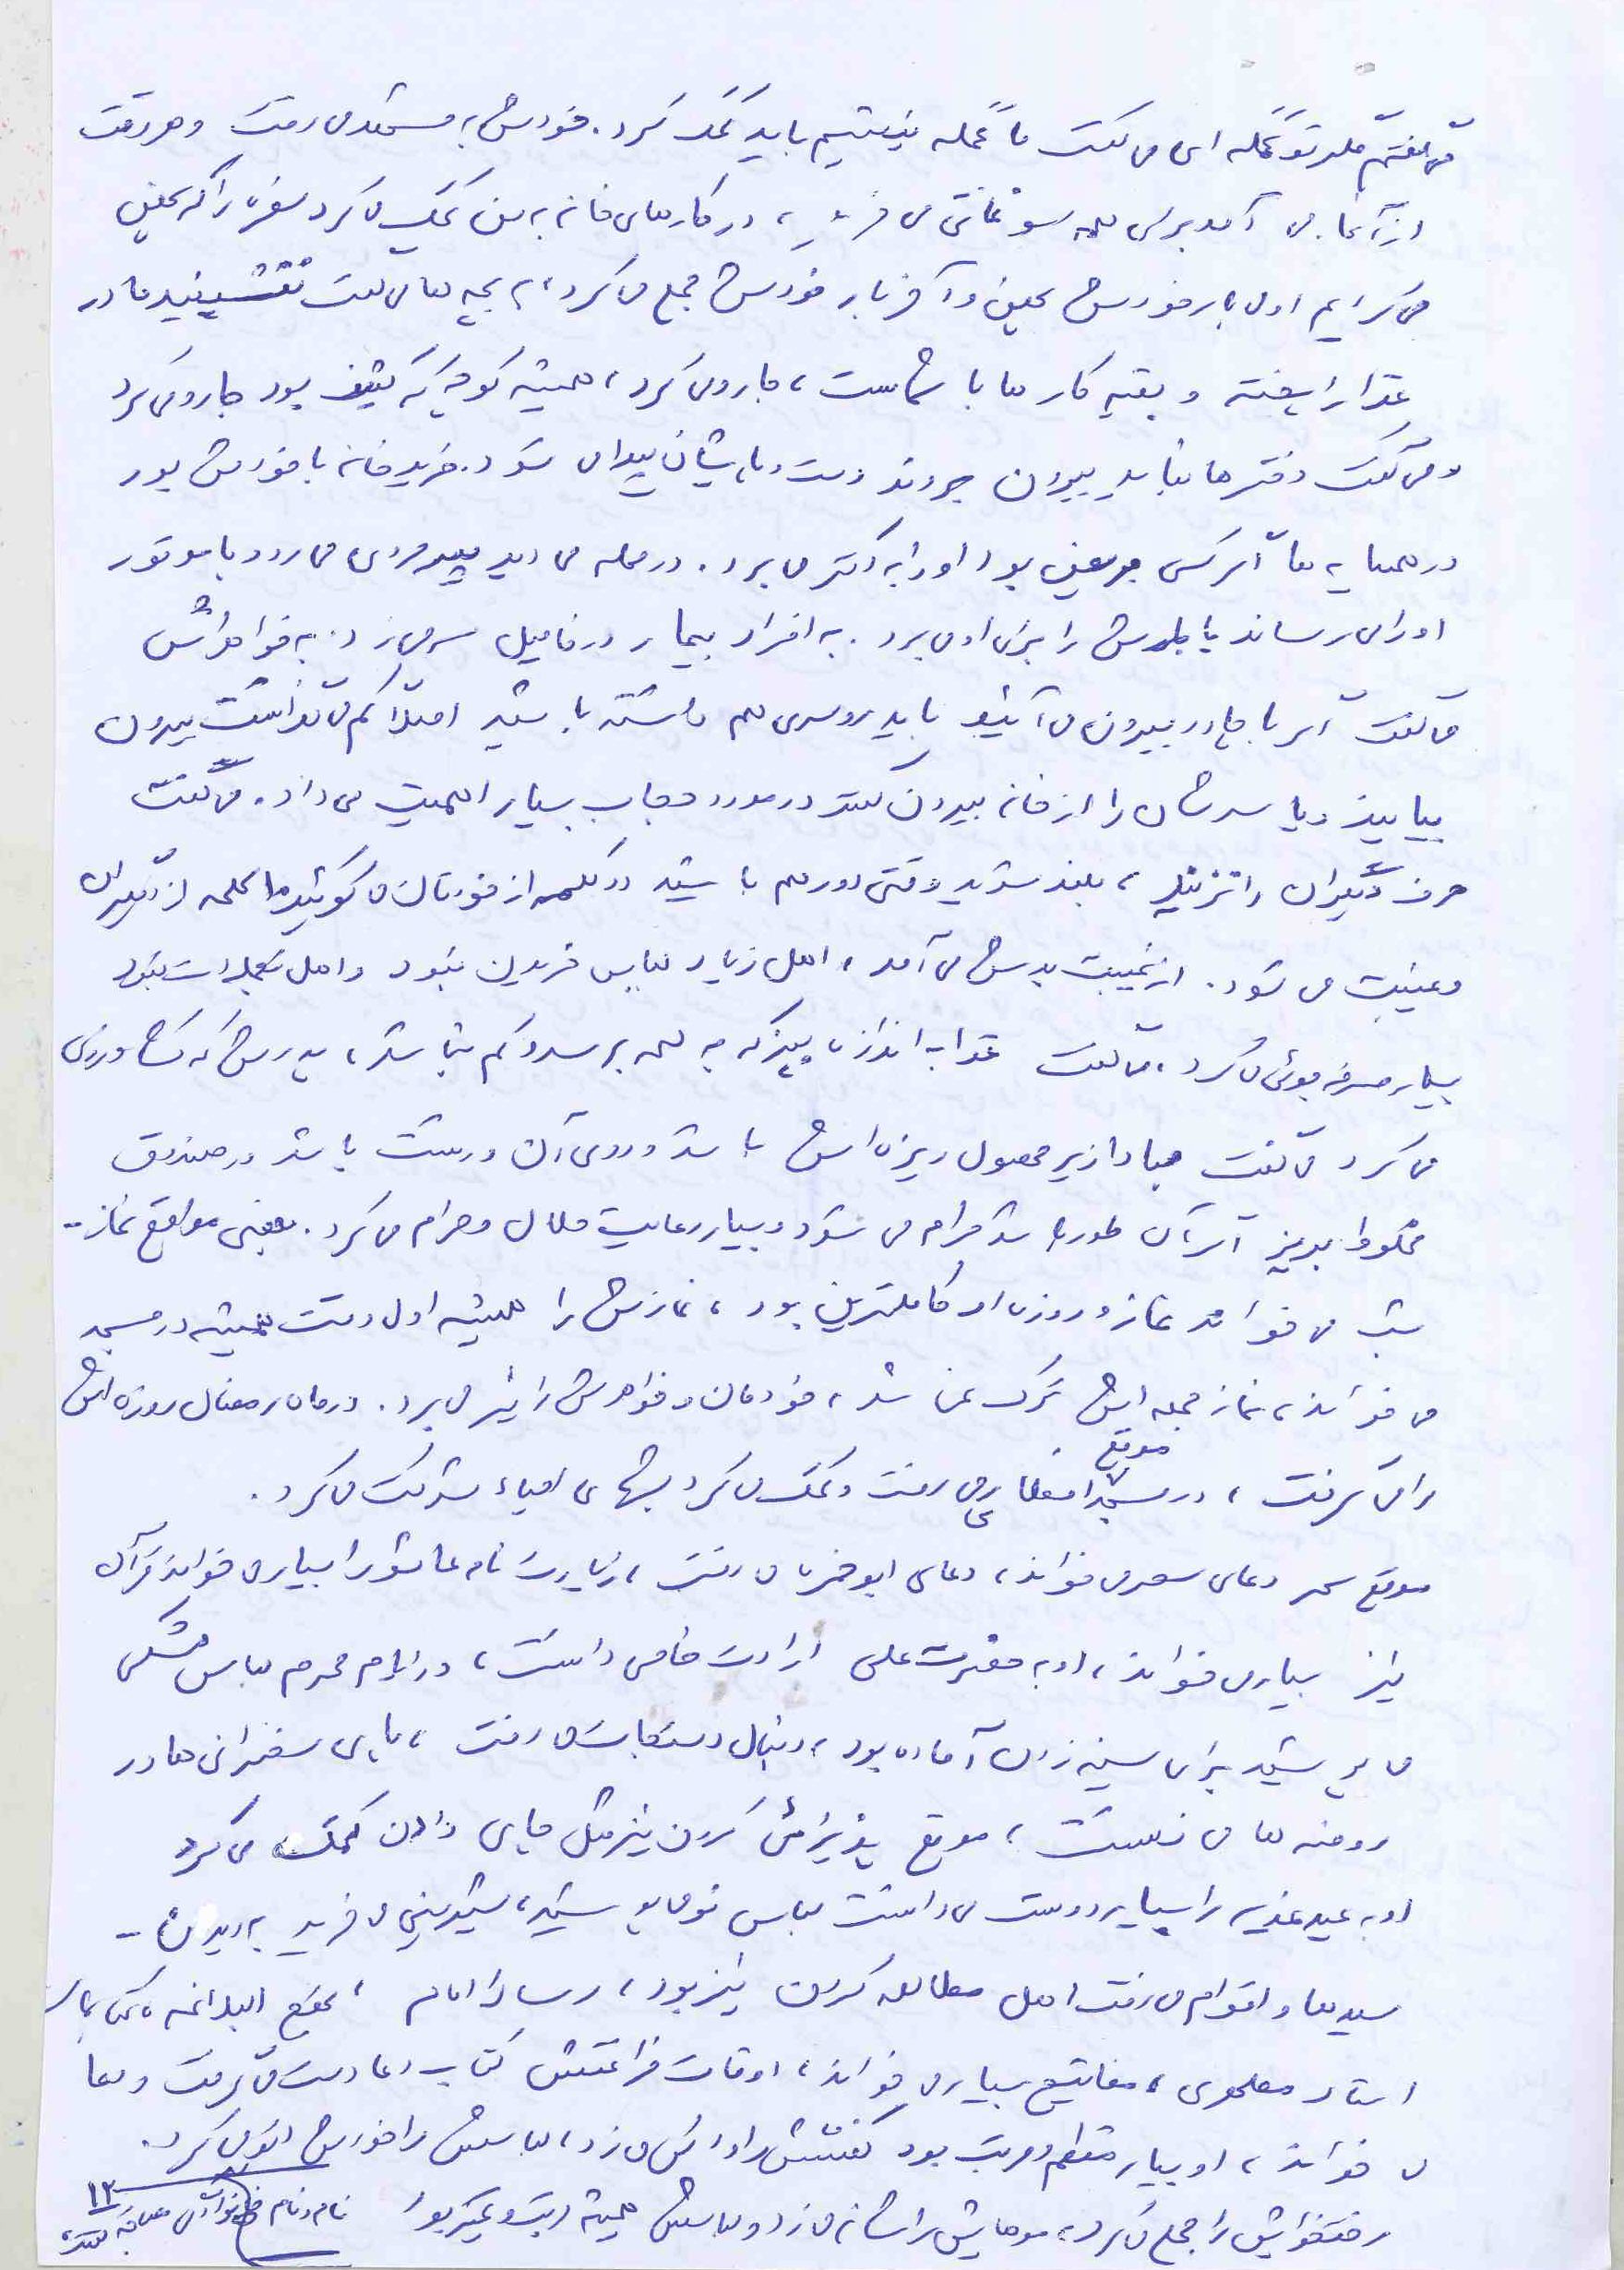 می گفتم مگر تو عمله ای می گفت ما عمله نیستیم باید کمک کرد. خودش به مشهد می رفت و هر وقت
از آنجا می آمد برای همه سوغاتی می خرید، در کارهای خانه به من کمک می کرد سفره را که پهن
می کردیم اول بار خودش پهن و آخر بار خودش جمع می کرد، به بچه ها می گفت بنشینید مادر
غذا را پخته و بقیه کارها با شماست، جارو می کرد، همیشه کوچه که کثیف بود جارو می کرد
و می گفت دخترها نباید بیرون بروند دست و پایشان پیدا می شود. خرید خانه با خودش بود
در همسایه ها اگر کسی مریض بود او را به دکتر می برد. در محله می دید پیرمردی می رود با موتور
او را می رساند یا بارش را برای او می برد. به افراد بیمار در فامیل سر می زد. به خواهرانش
می گفت اگر با چادر بیرون می آئید باید روسری هم داشته باشید اصلا کم می گذاشت بیرون
بیایند و یا سرشان را از خانه بیرون کنند در مورد حجاب بسیار اهمیت می داد. می گفت
حرف دیگران را نزنید، بلند شوید وقتی دور هم باشید دو کلمه از خودتان می گوئید ۱۰ کلمه از دیگران
و غیبت می شود. از غیبت بدش می آمد، اهل زیاد لباس خریدن نبود و اهل تجملات نبود
بسیار صرفه جوئی می کرد، می گفت غذا به اندازه بپز که به همه برسد و کم نباشد، پدرش که کشاورزی
می کرد می گفت مبادا زیر محصول ریزه اش باشد و روی آن درشت باشد در صندوق
مخلوط بریز اگر آن طور باشد حرام می شود و بسیار رعایت حلال و حرام می کرد. بعضی مواقع نماز -
شب می خواند نماز و روزه او کاملترین بود، نمازش را همیشه اول وقت همیشه در مسجد
می خواند، نماز جمعه اش ترک نمی شد، خودمان و خواهرش را نیز می برد. در ماه رمضان روزه اش
را می گرفت، در مسجد موقع افطاری می رفت و کمک می کرد شبهای احیاء شرکت می کرد.
موقع سحر دعای سحر می خواند، دعای ابوحمزه می رفت، زیارت نامه عاشورا بسیار می خواند قرآن
نیز بسیار می خواند، او به حضرت علی ارادت خاصی داشت، در ایام محرم لباس مشکی
می پوشید برای سینه زدن آماده بود، دنبال دستجات می رفت، پای سخنرانی ها و در
روضه ها می نشست، موقع پذیرائی کردن نیز مثل چای دادن کمک می کرد
او به عید غدیر را بسیار دوست می داشت لباس نو می پوشید، شیرینی می خرید به دیدن -
سیدها و اقوام می رفت اهل مطالعه کردن نیز بود، رساله امام، نهج البلاغه کتابهای
استاد مطهری، مفاتیح بسیار می خواند، اوقات فراغتش کتاب دعا دست می گرفت و دعا
می خواند، او بسیار منظم و مرتب بود کفشش را واکس می زد، لباسش را خودش اتو می کرد.
رختخوابش را جمع می کرد، موهایش را شانه می زد و لباسش همیشه مرتب و تمیز بود
نام و نام خانوادگی مصاحبه کننده
۱۲